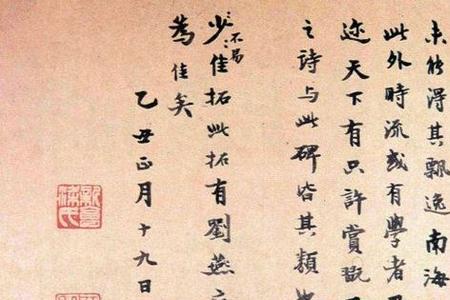 未能得其飄逸南海
此外時流或有學者
迹天下有只許賞翫
之詩與此碑皆其類
少佳拓此拓有劉燕
不易
為佳矣
乙丑正月十九日